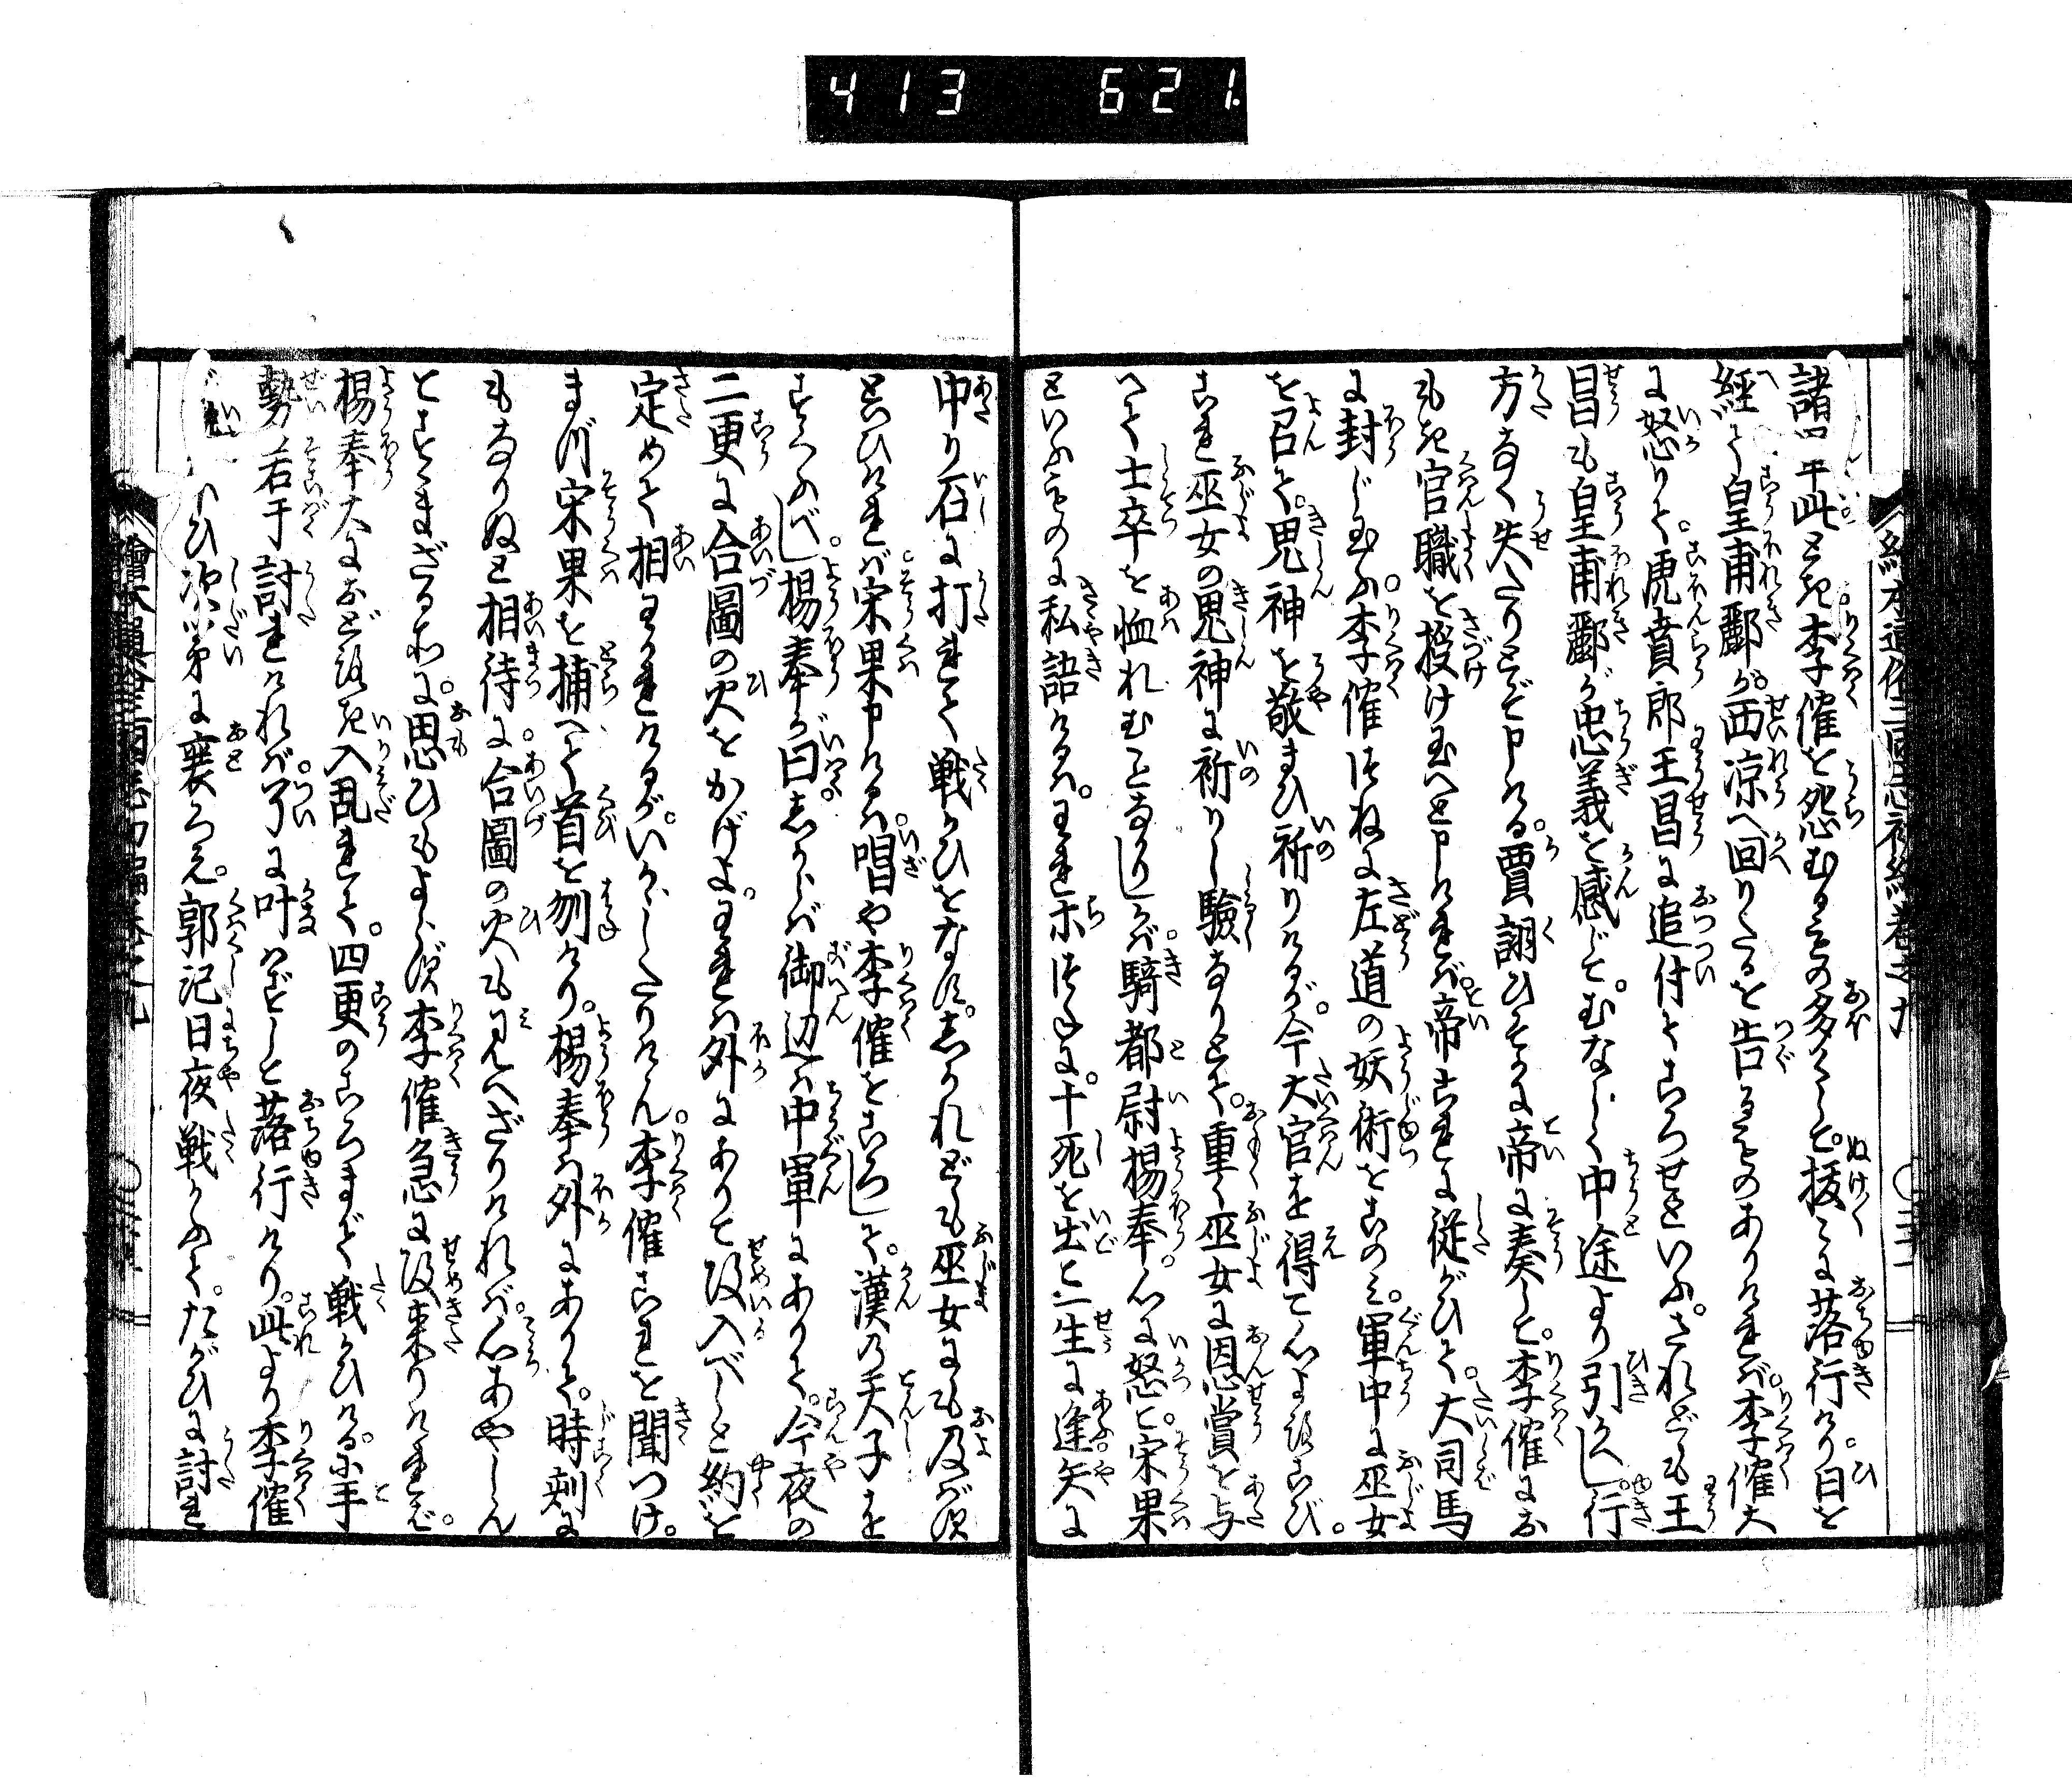 413 621.
諸 平此とき李傕を怨むるもの多くして援々に落行けり日を
経て皇甫酈が西凉へ回りたるを告るものありければ李傕大
に怒りて虎賁郎王昌に追付てころせといふされども王
昌も皇甫酈が忠義を感じてむなしく中途より引かへし行
方なく失たりとぞ申ける賈詡ひそかに帝に奏して李傕にお
もき官職を授け玉へと申ければ帝これに従がひて大司馬
に封じ玉ふ李傕つねに左道の妖術をこのみ軍中に巫女
を召て鬼神を敬まひ祈りけるが今大官を得て心よろこび
これ巫女の鬼神に祈りし驗なりとて重く巫女に恩賞を与
へて士卒を恤れむことなかりしが騎都尉楊奉心に怒て宋果
といふものに私語けるはわれ未つねに十死を出て一生に逢矢に
中り石に打れて戦かひをなすしかれども巫女にも及ばず
といひければ宋果申けるは唱や李傕をころして漢乃天子を
すくふべし楊奉が曰しからば御辺は中軍にありて今夜の
二更に合圖の火をかげよわれは外にありて攻入べしと約を
定めて相わかれけるがいかゞしたりけん李傕これを聞つけ
まづ宋果を捕へて首を刎けり楊奉は外にありて時刻に
もなりぬと相待に合圖の火も見へざりければ心あやしん
とすゝまざる所に思ひもよらず李傕急に攻来りければ
楊奉大におどろき入乱れて四更のころまで戦かひける小手
勢若干討れければ了に叶はずして落行けり此より李傕
勢い 次第に衰ろえ郭汜日夜戦かふてたがひに討れ